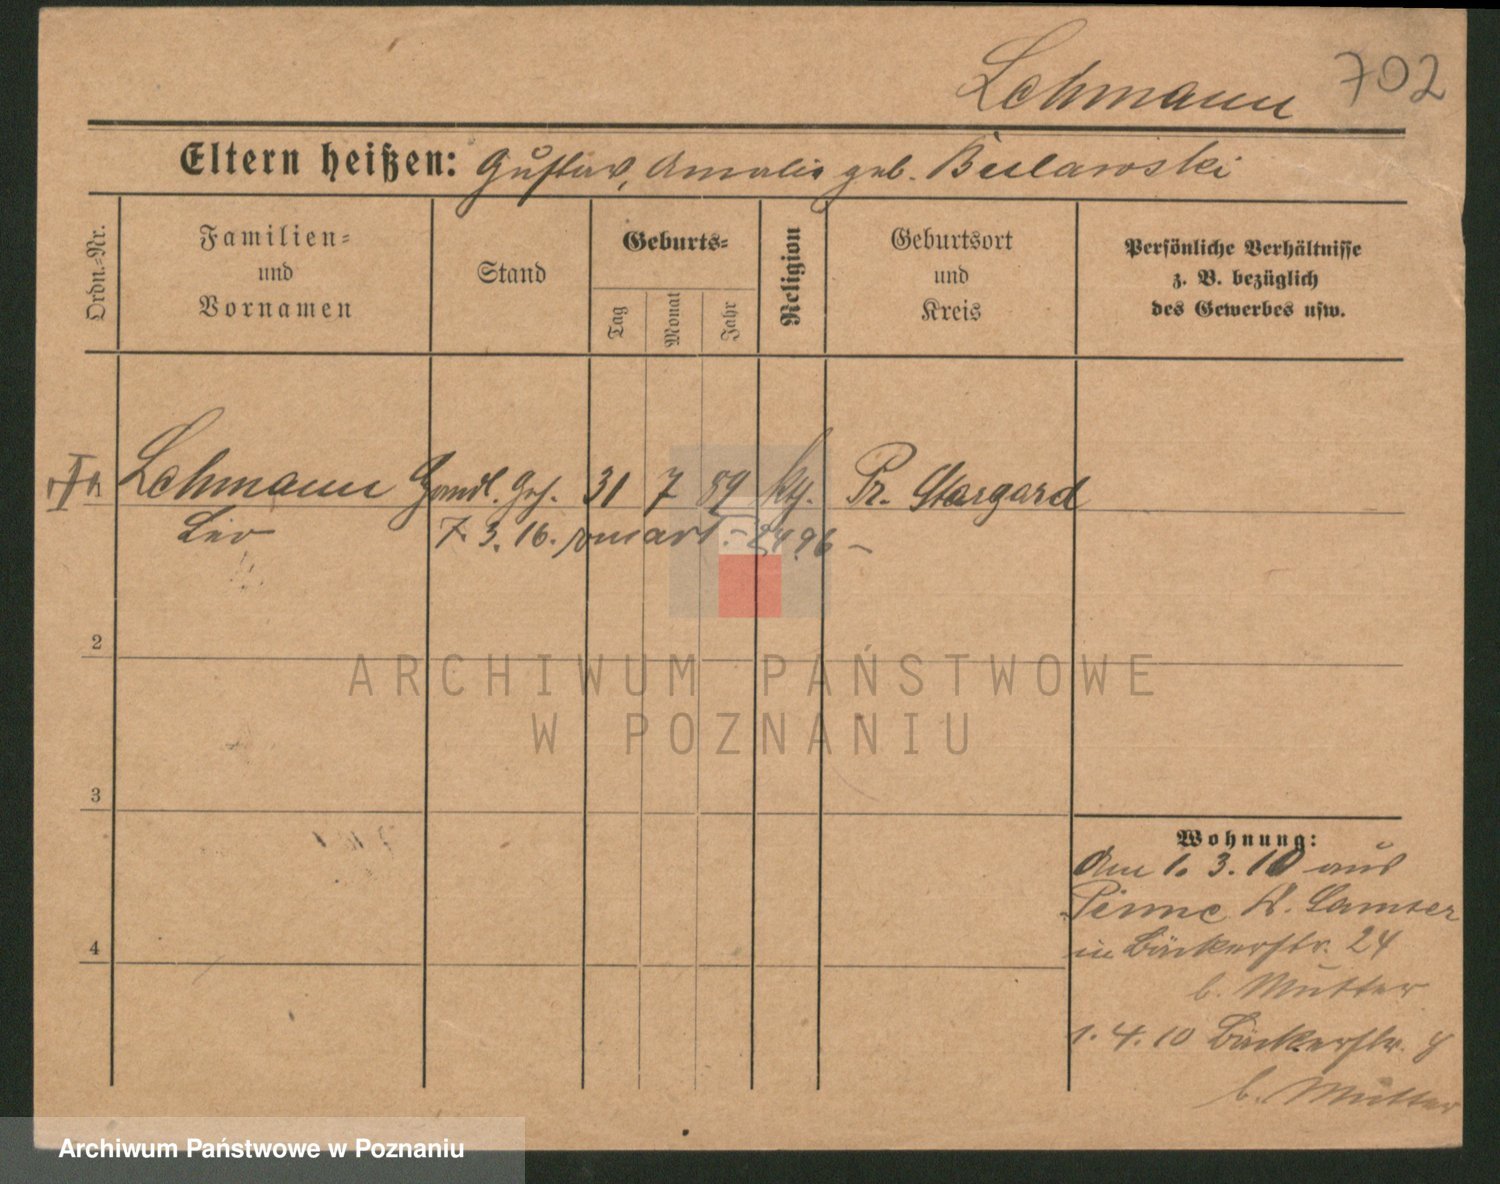 Lehmann 702
Eltern heißen: Gustav, Amalie geb. Bielawski
Ordn.-Nr.
Familien-
und
Vornamen
Stand
Geburts-
Tag
Monat
Jahr
Religion
Geburtsort
und
Kreis
Persönliche Verhältnisse
z. B. bezüglich
des Gewerbes usw.
Lehmann Handl. Geh. 31 7 89 kth. Pr. Stargard
Leo 7. 3. 16.
2
3
4
Wohnung:
Am 1. 3. 10 aus
Pinne Kr. Samter
in Bäckerstr. 24
b. Mutter
1. 4. 10 Bäckerstr. 8
b. Mutter
ARCHIWUM PAŃSTWOWE
W POZNANIU
Archiwum Państwowe w Poznaniu